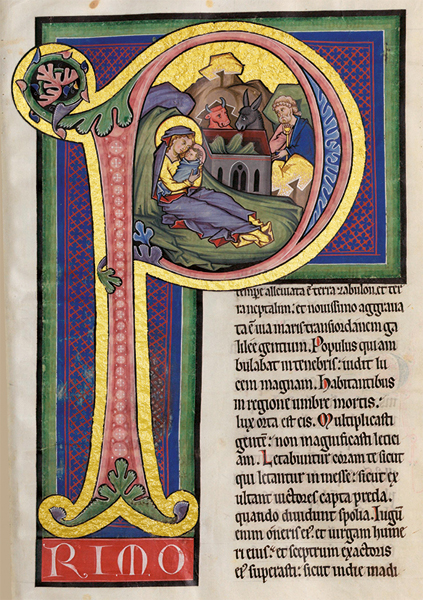 P
RIMO
tempe alleuiata ē terra zabulon. et ter
ra neptalim: et nouissimo aggraua
ta ē uia maris transiordanem ga
lilee gentium. Populus qui am
bulabat in tenebris: uidit lu
cem magnam. Habitantibus
in regione umbre mortis:
lux orta est eis. Multiplicasti
gentē: non magnificasti letici
am. Letabuntur coram te sicut
qui letantur in messe: sicut ex
ultant uictores capta preda.
quando diuidunt spolia. Iugū
enim oneris eiꝰ et uirgam hume
ri eius: et sceptrum exactoris
eiꝰ superasti: sicut in die madi